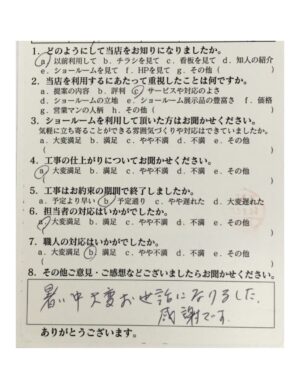 1. どのようにして当店をお知りになりましたか。
a. 以前利用して b. チラシを見て c. 看板を見て d. 知人の紹介
e. ショールームを見て f. HPを見て g. その他（
2. 当店を利用するにあたって重視したことは何ですか。
a. 提案の内容 b. 評判 c. サービスや対応のよさ
d. ショールームの立地 e. ショールーム展示品の豊富さ f. 価格
g. 営業マンの人柄 h. その他（
3. ショールームを利用して頂いた方はお聞かせください。
気軽に立ち寄ることができる雰囲気づくりや対応はできていましたか。
a. 大変満足 b. 満足 c. やや不満 d. 不満 e. その他（
4. 工事の仕上がりについてお聞かせください。
a. 大変満足 b. 満足 c. やや不満 d. 不満 e. その他（
5. 工事はお約束の期間で終了しましたか。
a. 予定より早い b. 予定通り c. やや遅れた d. 大変遅れた
6. 担当者の対応はいかがでしたか。
a. 大変満足 b. 満足 c. やや不満 d. 不満 e. その他（
7. 職人の対応はいかがでしたか。
a. 大変満足 b. 満足 c. やや不満 d. 不満 e. その他（
8. その他ご意見・ご感想などございましたらお聞かせください。
暑い中大変お世話になりました。
感謝です。
ありがとうございます。